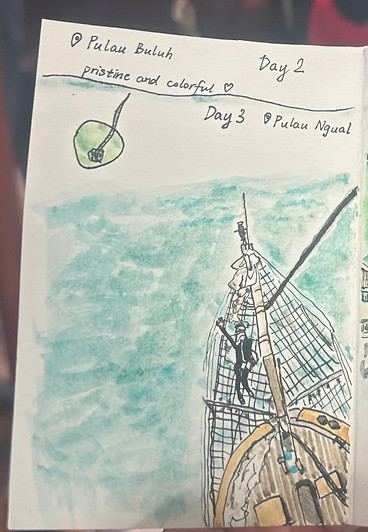 Pulau Buluh
Day 2
pristine and colorful ♡
Day 3
Pulau Ngual